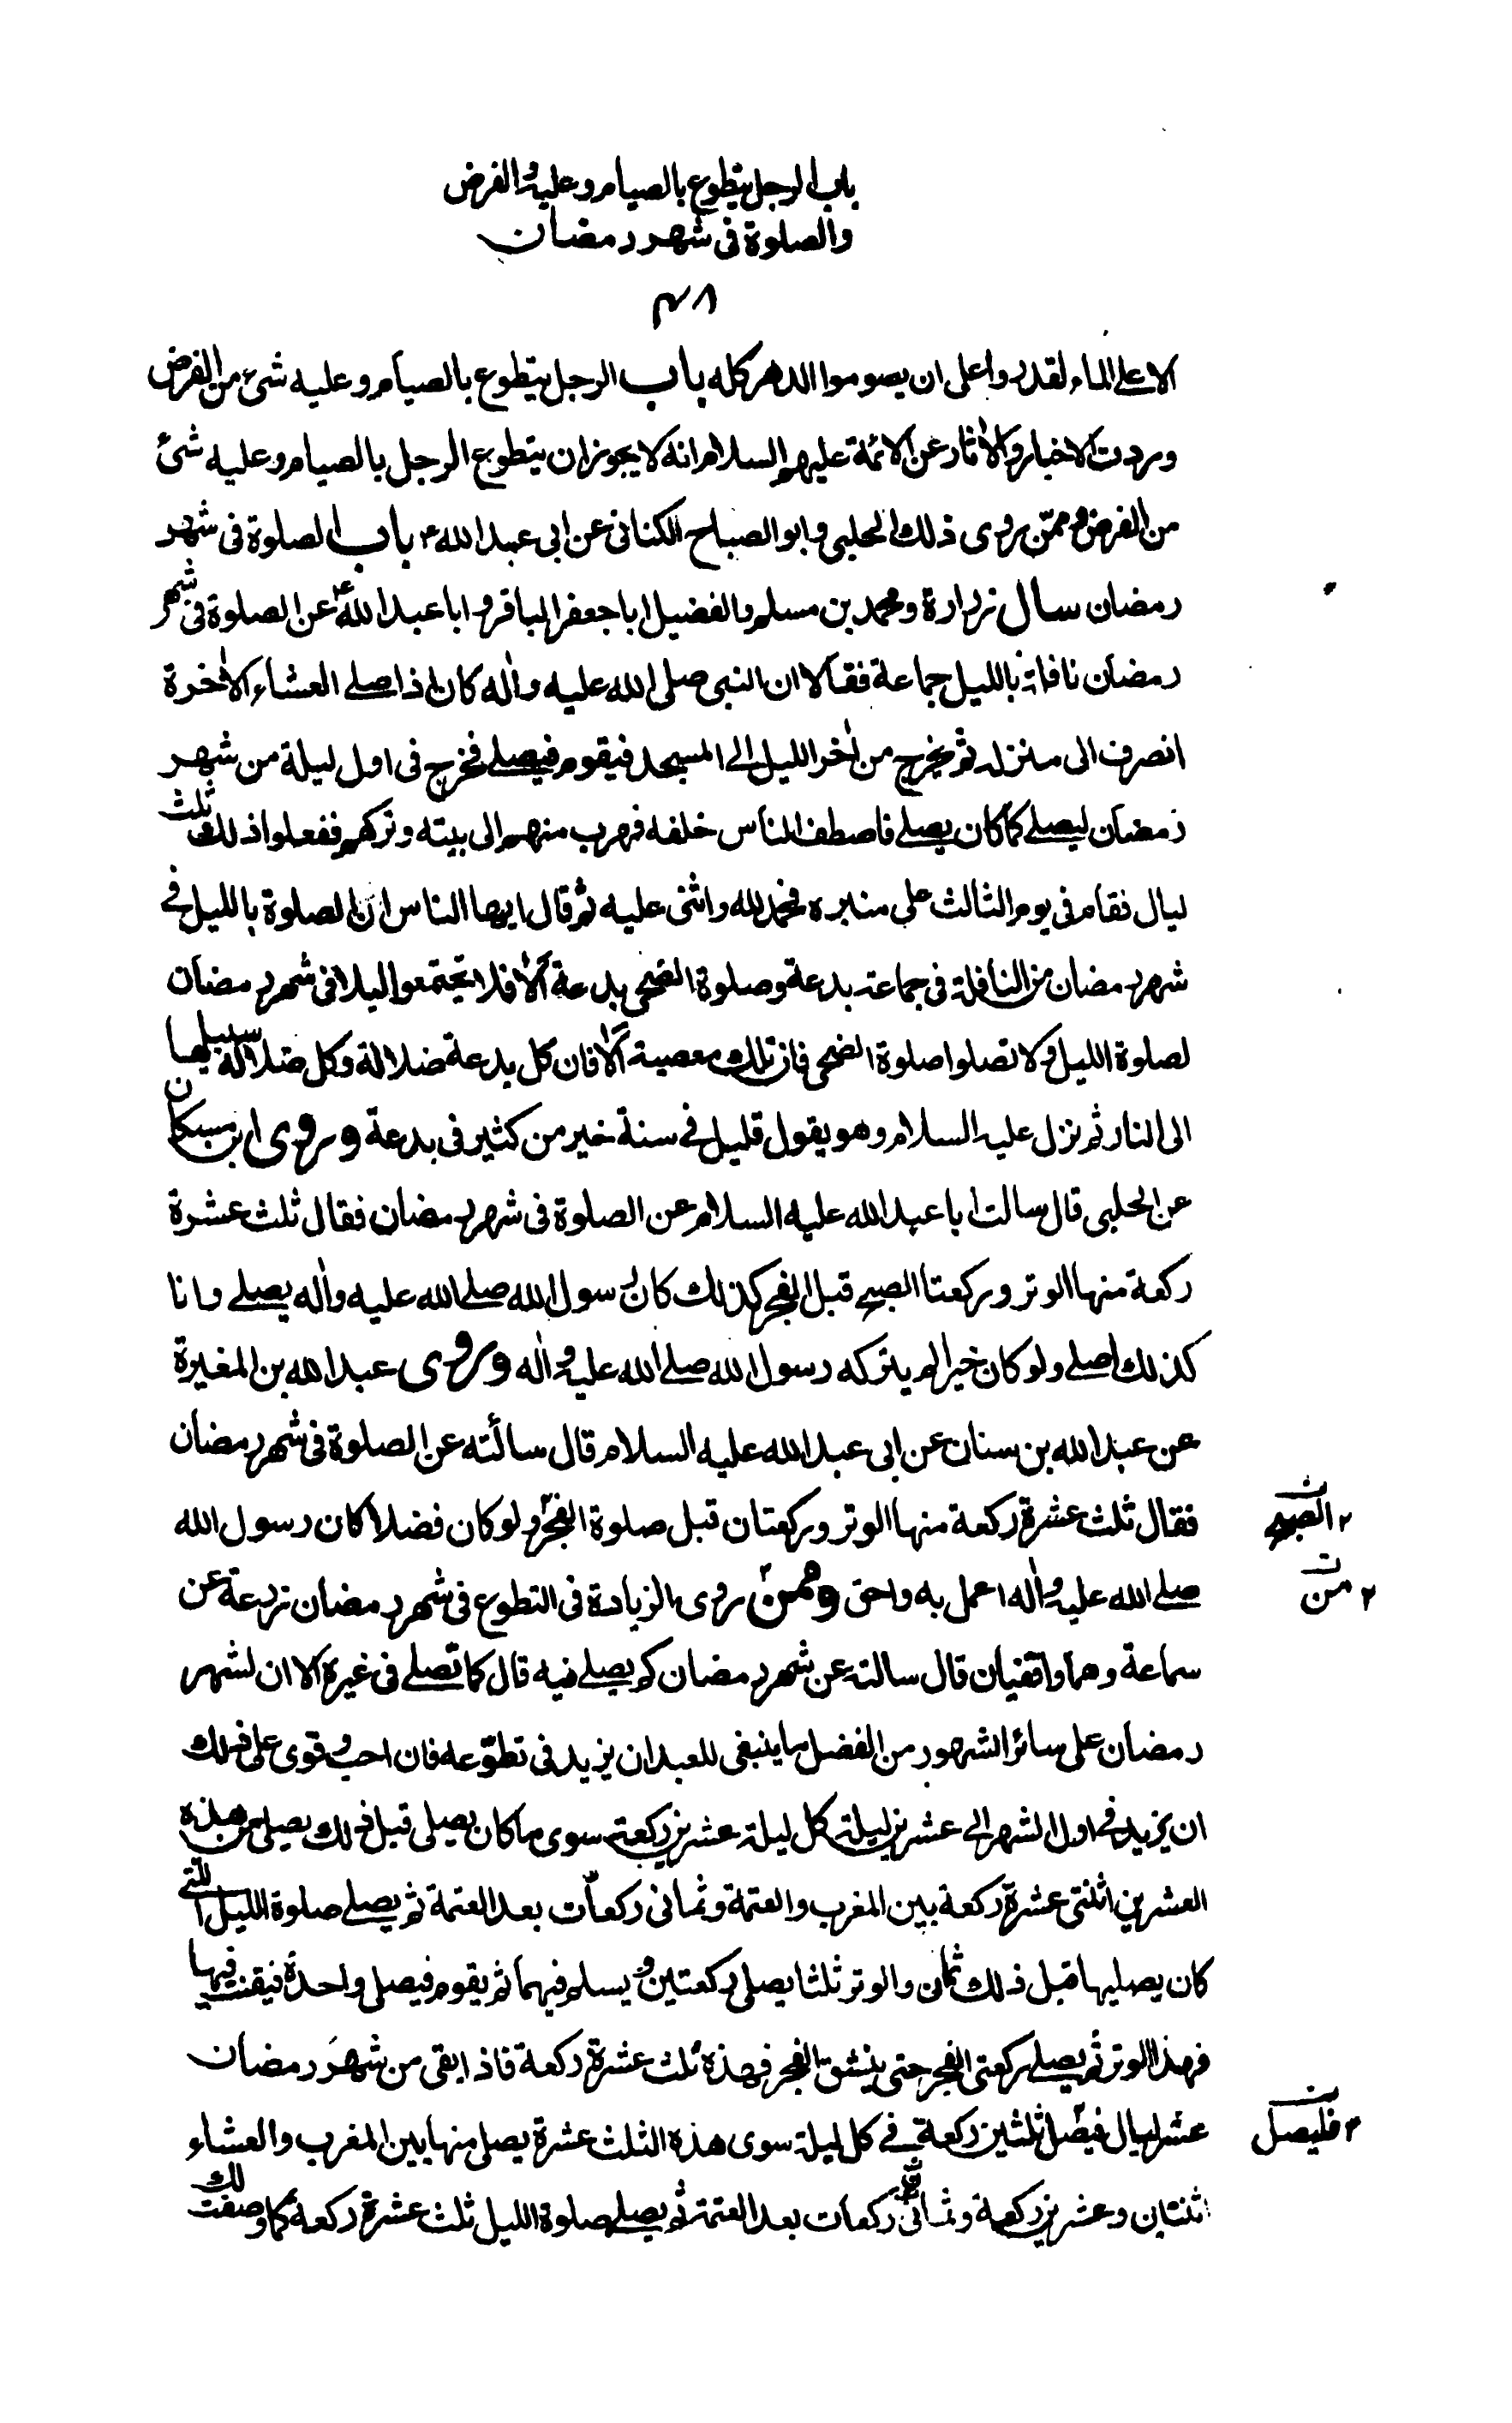 باب الرجل يتطوع بالصيام وعليه الفرض
والصلوة فى شهر رمضان
٤٨
الا على الماء لقدروا على ان يصوموا الدهر كله باب الرجل يتطوع بالصيام وعليه شئ من الفرض
وردت الاخبار والاثار عن الائمة عليهم السلام انه لا يجوز ان يتطوع الرجل بالصيام وعليه شئ
من الفرض وممّن روى ذلك الحلبى وابو الصباح الكنانى عن ابى عبد الله ع باب الصلوة فى شهر
رمضان سال زرارة ومحمد بن مسلم والفضيل ابا جعفر الباقر وابا عبد الله ع عن الصلوة فى شهر
رمضان نافلة بالليل جماعة فقالا ان النبى صلى الله عليه واله كان اذا صلى العشاء الاخرة
انصرف الى منزله ثم يخرج من اخر الليل الى المسجد فيقوم فيصلى فخرج فى اول ليلة من شهر
رمضان ليصلى كما كان يصلى فاصطف الناس خلفه فهرب منهم الى بيته وتركهم ففعلوا ذلك ثلث
ليال فقام فى يوم الثالث على منبره فحمد الله واثنى عليه ثم قال ايها الناس ان الصلوة بالليل فى
شهر رمضان من النافلة فى جماعة بدعة وصلوة الضحى بدعة الا فلا تجتمعوا ليلا فى شهر رمضان
لصلوة الليل ولا تصلوا صلوة الضحى فان تلك معصية الا فان كل بدعة ضلالة وكل ضلالة سبيلها
الى النار ثم نزل عليه السلام وهو يقول قليل فى سنة خير من كثير فى بدعة وروى ابن مسكان
عن الحلبى قال سالت ابا عبد الله عليه السلام عن الصلوة فى شهر رمضان فقال ثلث عشرة
ركعة منها الوتر وركعتا الصبح قبل الفجر كذلك كان رسول الله صلى الله عليه واله يصلى وانا
كذلك اصلى ولو كان خيرا لم يتركه رسول الله صلى الله عليه واله وروى عبد الله بن المغيرة
عن عبد الله بن سنان عن ابى عبد الله عليه السلام قال سالته عن الصلوة فى شهر رمضان
فقال ثلث عشرة ركعة منها الوتر وركعتان قبل صلوة الفجر ولو كان فضلا كان رسول الله
٢ الصبح
صلى الله عليه واله اعمل به واحق وممن روى الزيادة فى التطوع فى شهر رمضان زرعة عن
٢ من
سماعة وهما واقفيان قال سالته عن شهر رمضان كم يصلى فيه قال كما تصلى فى غيره الا ان لشهر
رمضان على سائر الشهور من الفضل ما ينبغى للعبد ان يزيد فى تطوّعه فان احب وقوى على ذلك
ان يزيد فى اول الشهر الى عشرين ليلة كل ليلة عشرين ركعة سوى ما كان يصلى قبل ذلك يصلى من هذه
العشرين اثنتى عشرة ركعة بين المغرب والعتمة وثمانى ركعات بعد العتمة ثم يصلى صلوة الليل التى
كان يصليها قبل ذلك ثمان والوتر ثلثا يصلى ركعتين ويسلم فيهما ثم يقوم فيصلى واحدة فيقنت فيها
فهذا الوتر ثم يصلى ركعتى الفجر حتى ينشق الفجر فهذه ثلث عشرة ركعة فاذا بقى من شهر رمضان
عشر ليال فيصل ثلثين ركعة فى كل ليلة سوى هذه الثلث عشرة يصلى منها بين المغرب والعشاء
٢ فليصل
اثنتان وعشرين ركعة وثمانى ركعات بعد العتمة ثم يصلى صلوة الليل ثلث عشرة ركعة كما وصفت لك